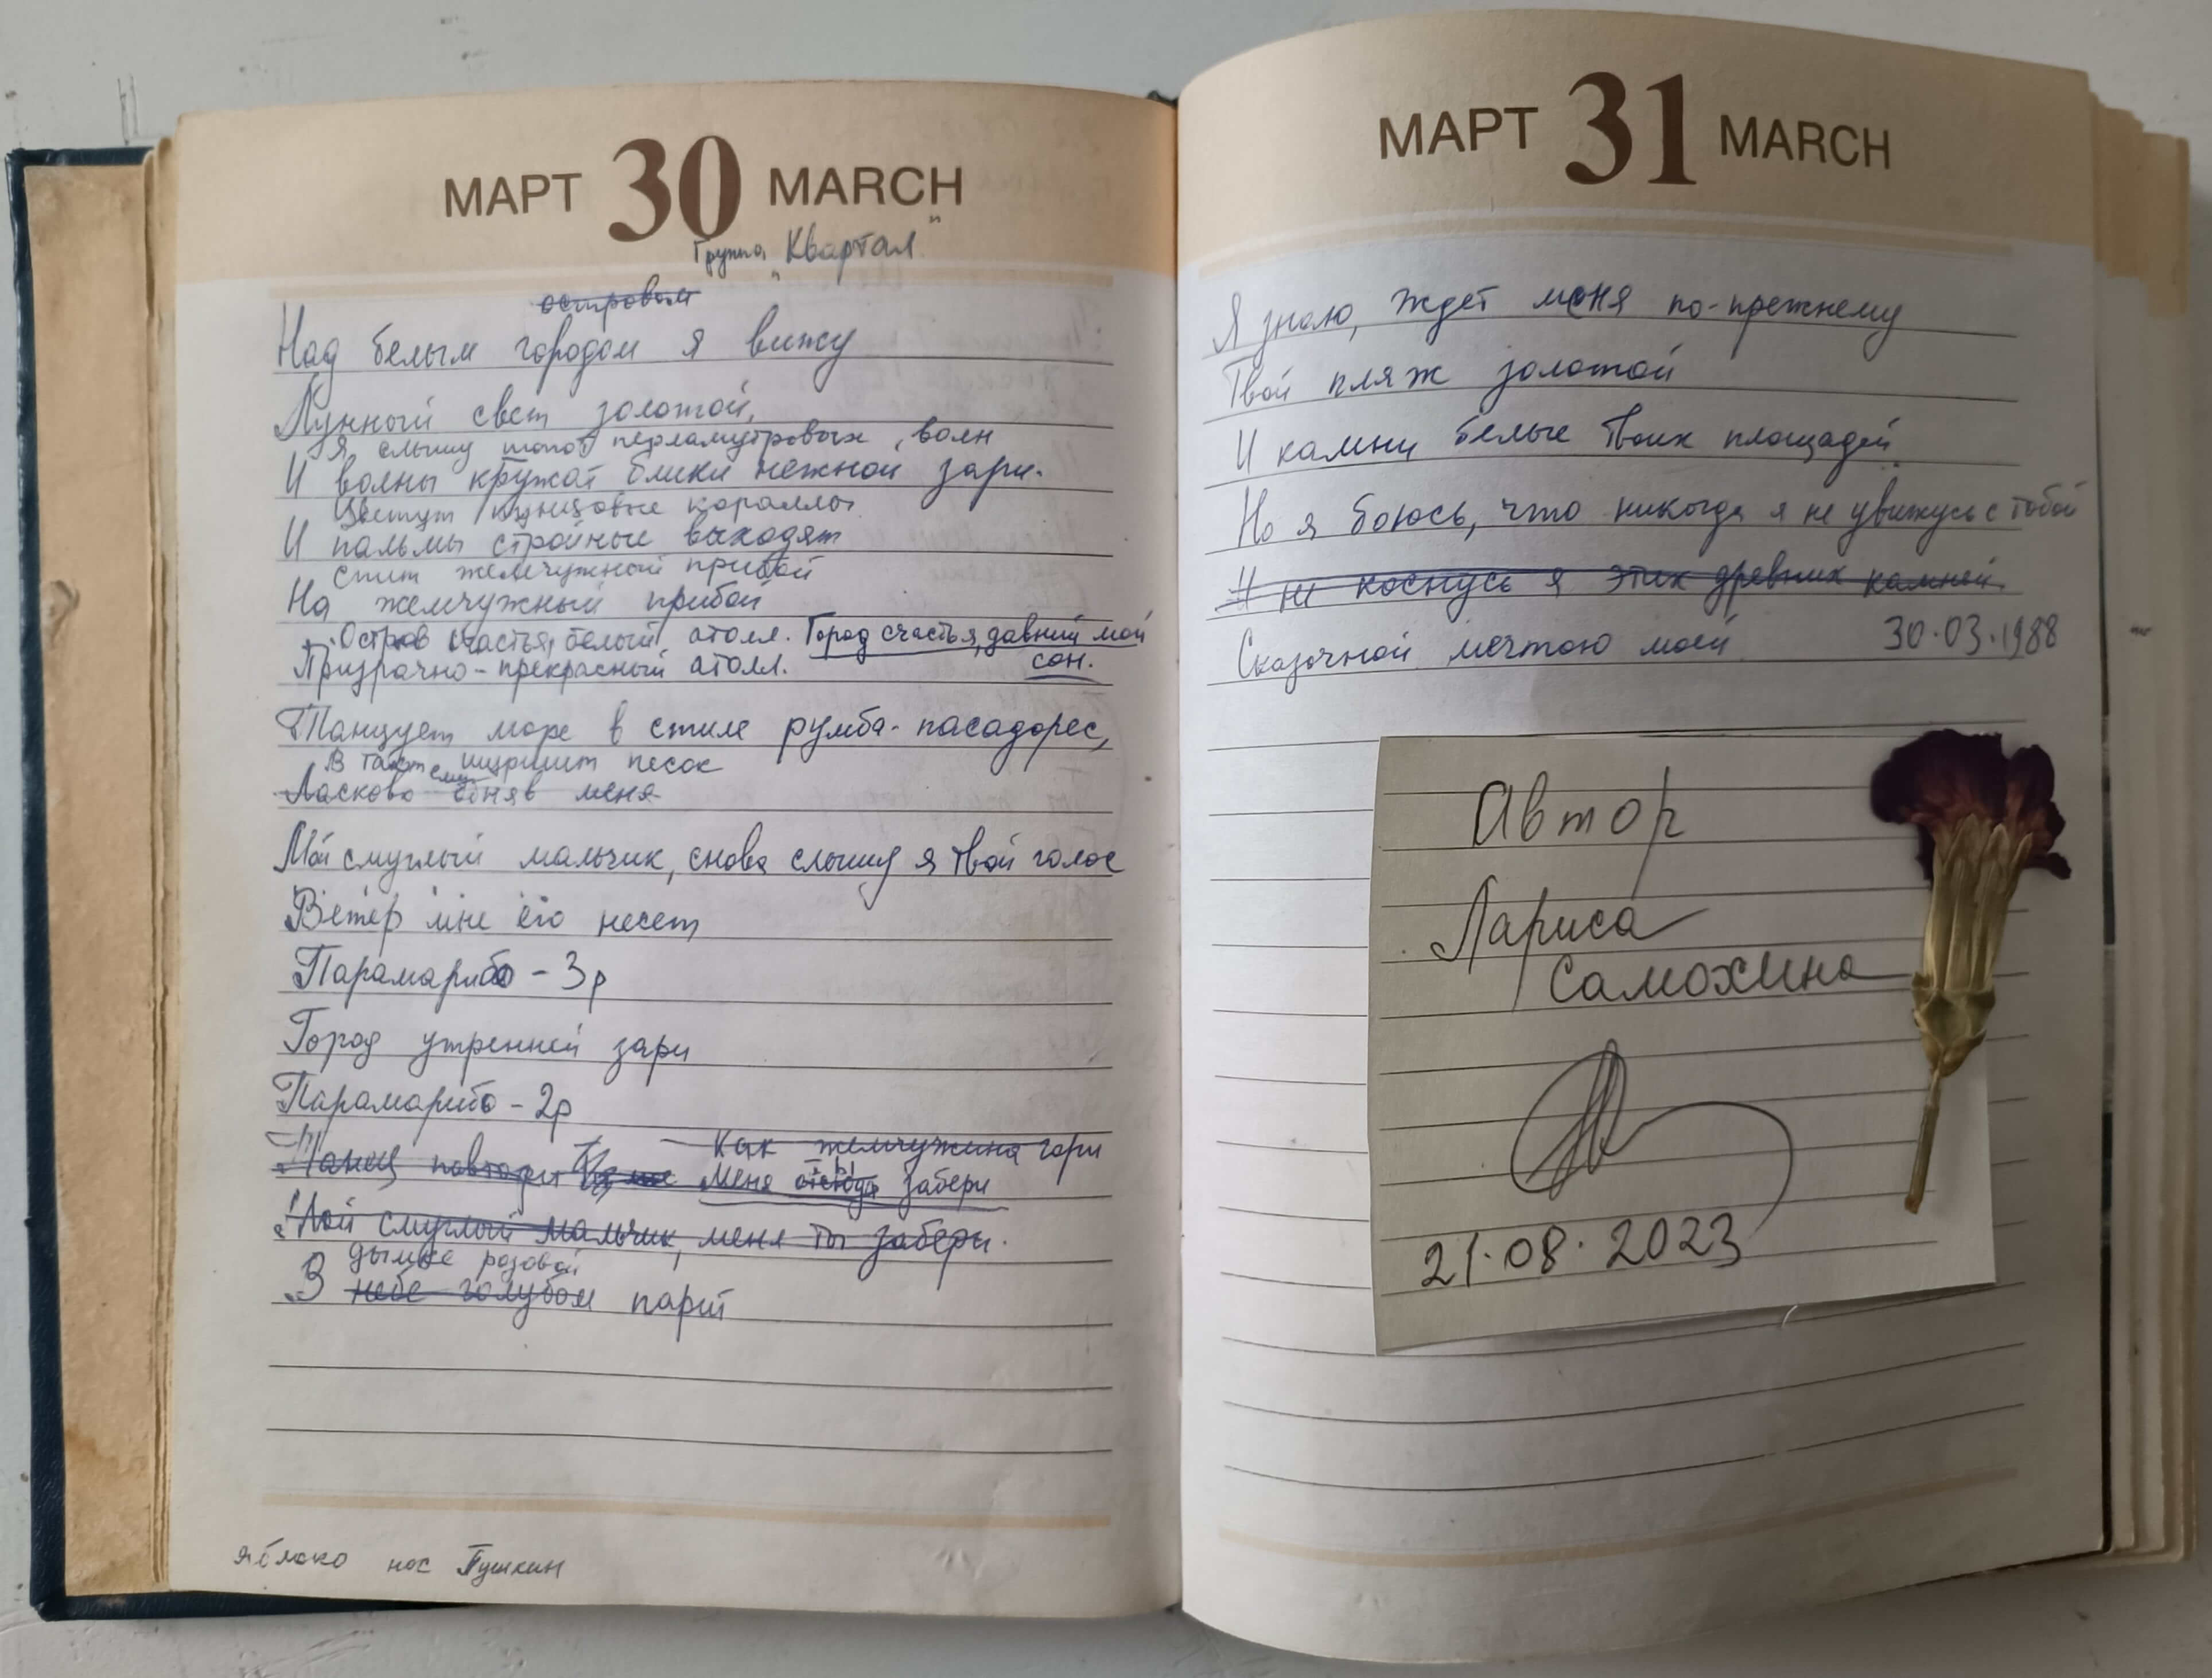 МАРТ 30 MARCH
Группа "Квартал"
островом
Над белым городом я вижу
Лунный свет золотой,
Я слышу шопот перламутровых волн
И волны кружат блики нежной зари.
Цветут пунцовые кораллы
И пальмы стройные выходят
Спит жемчужный прибой
На жемчужный прибой
Остров счастья, белый атолл. Город счастья, давний мой
Призрачно-прекрасный атолл. сон.
Танцует море в стиле румба-пасадорес,
В такт ему шуршит песок
Ласково обняв меня
Мой смуглый мальчик, снова слышу я твой голос
Ветер мне его несет
Парамарибо - 3р
Город утренней зари
Парамарибо - 2р
Как жемчужина гори
Танец повтори Меня забери
Мой смуглый мальчик, меня ты забери.
дымке розовой
В небе голубом парит
яблоко нос Пушкин
МАРТ 31 MARCH
Я знаю, ждет меня по-прежнему
Твой пляж золотой
И камни белые твоих площадей
Но я боюсь, что никогда я не увижусь с тобой
И не коснусь я этих древних камней
Сказочной мечтою моей 30.03.1988
Автор
Лариса
Самохина
21.08.2023